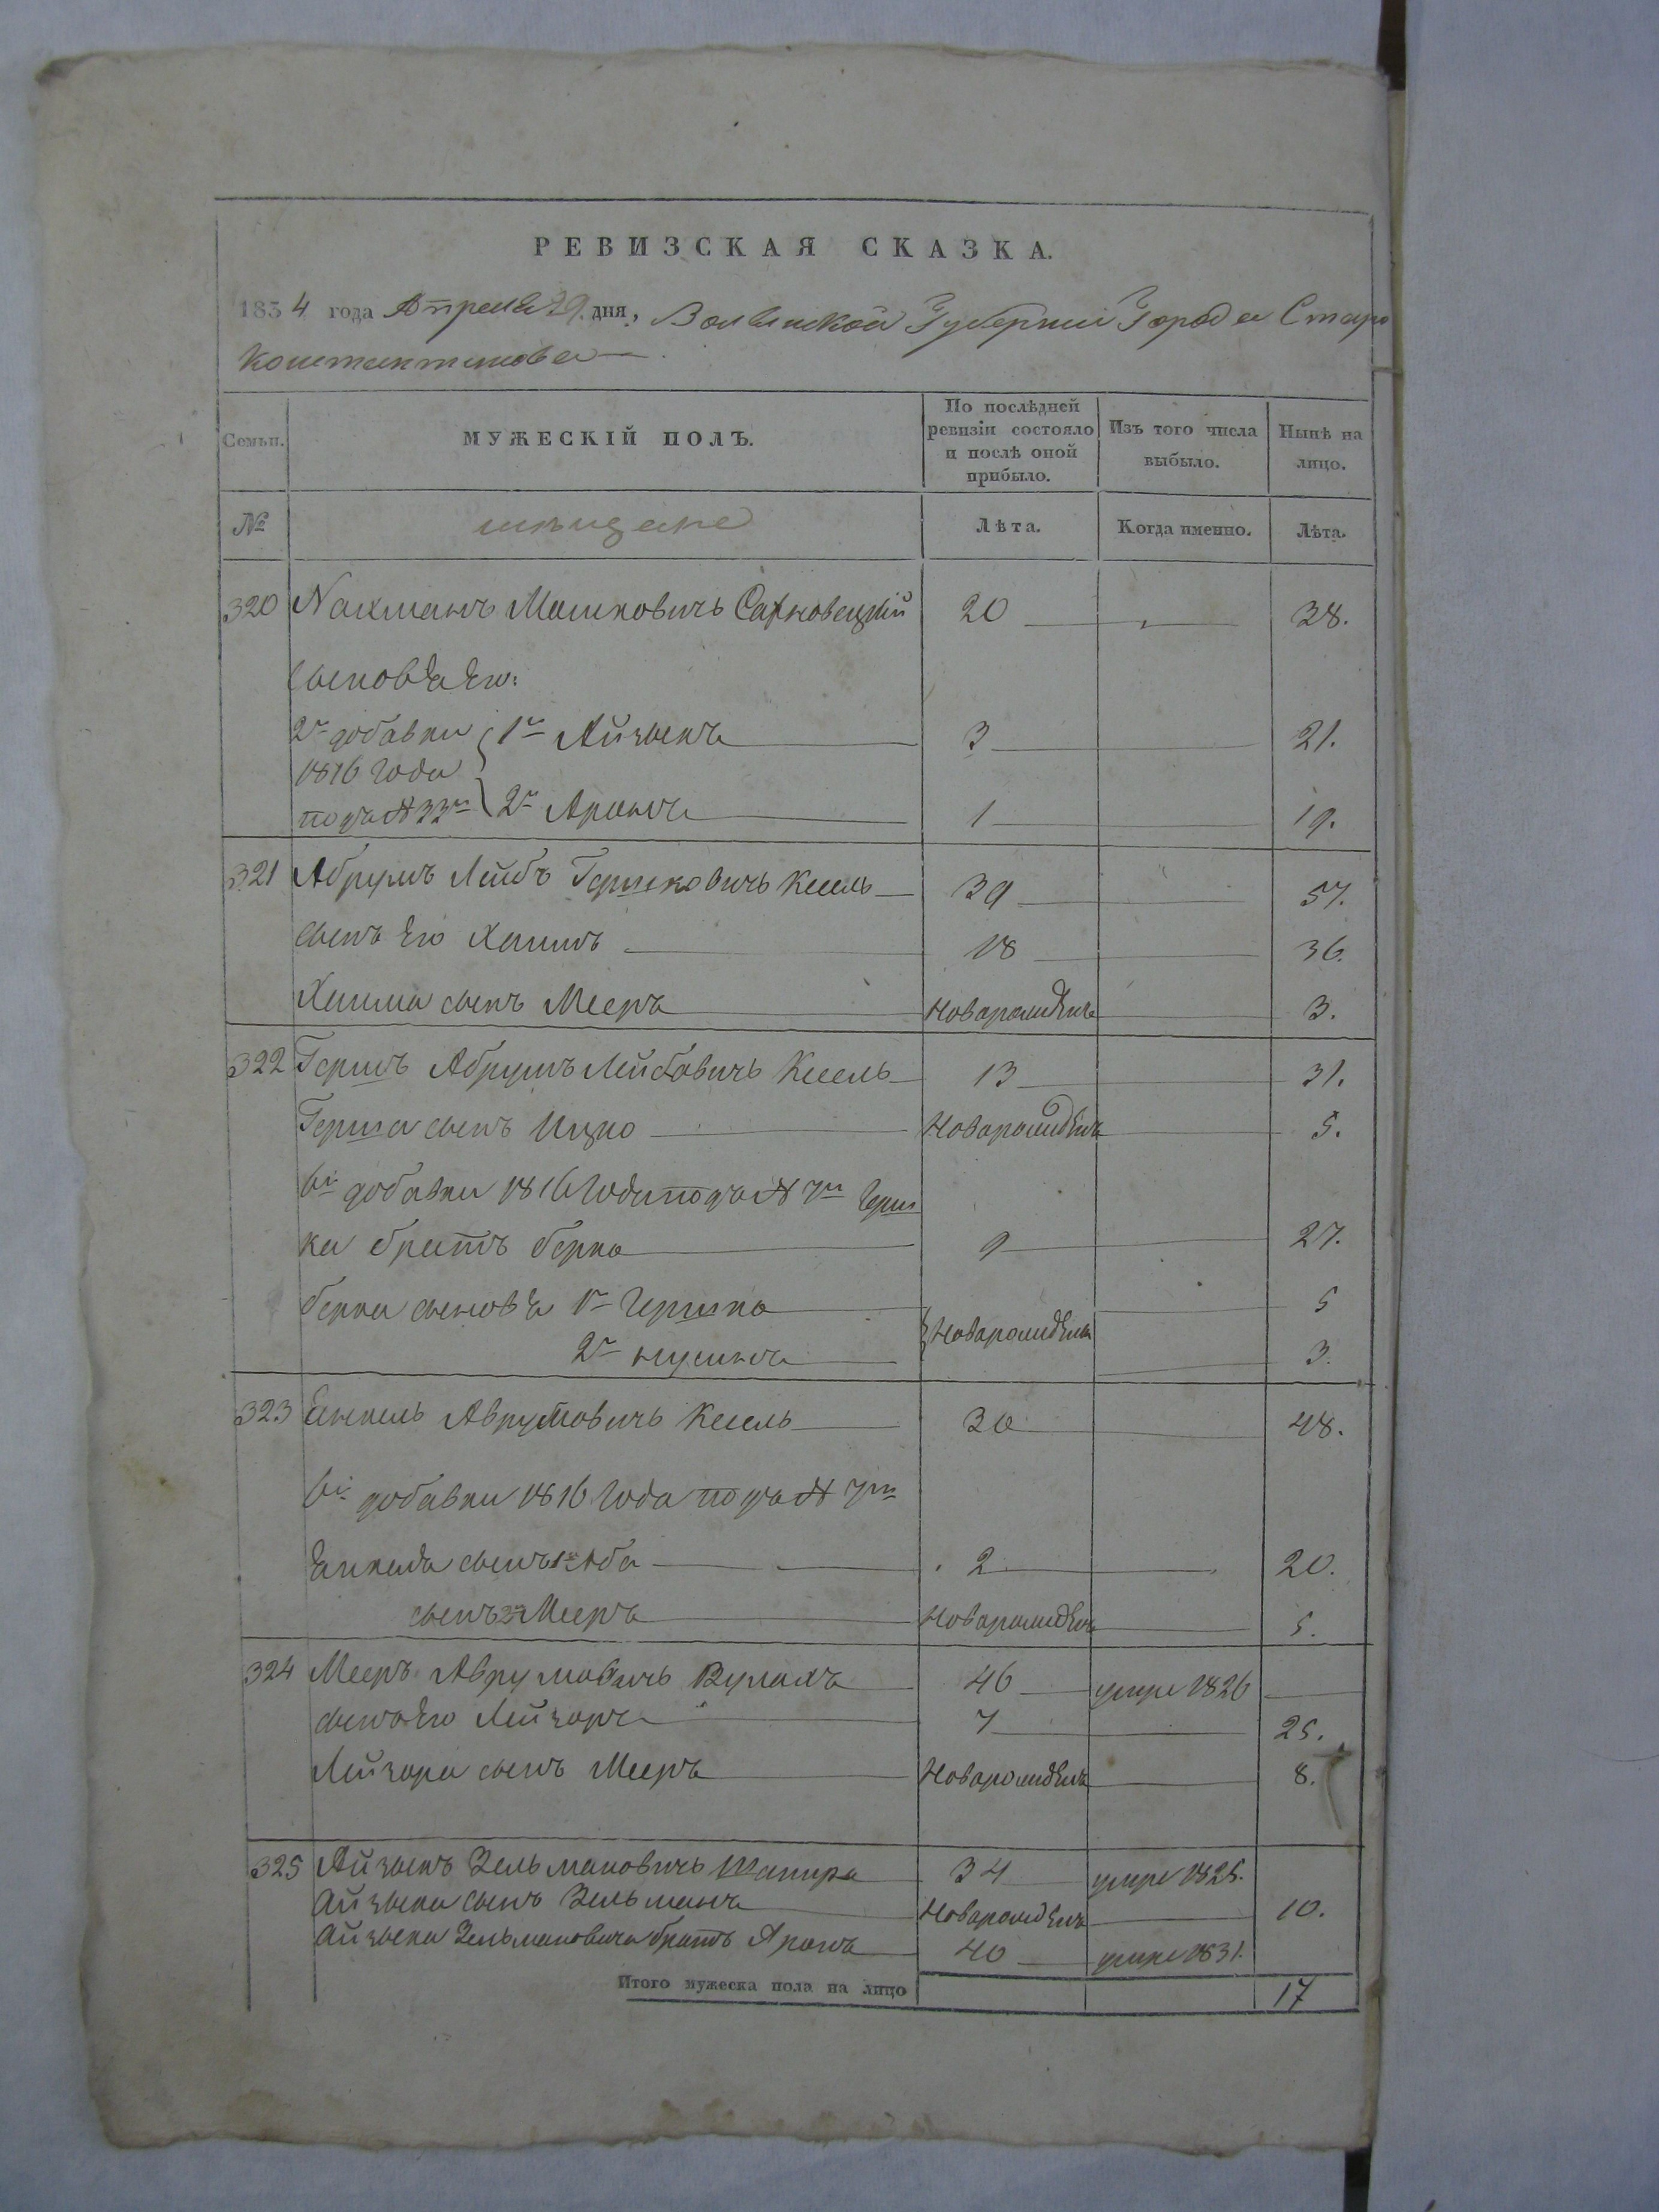 РЕВИЗСКАЯ СКАЗКА.
1834 года Апреля 29 дня, Волынской Губернии Города Старо
константинова
Семьи. МУЖЕСКІЙ ПОЛЪ. По послѣдней ревизіи состояло и послѣ оной прибыло. Изъ того числа выбыло. Нынѣ на лицо.
№ мѣщане Лѣта. Когда именно. Лѣта.
320 Нахманъ Машковичъ 20 38.
Сыновѣя Его:
2й добавки 1й Айзыкъ 3 21.
1816 года
подъ № 33м 2й Аронъ 1 19.
321 Абрумъ Лейбъ Гершковичъ Кесель 39 57.
сынъ Его Хаимъ 18 36.
Хаима сынъ Мееръ Новорожденъ 3.
322 Гершъ Абрумъ Лейбовичъ Кесель 13 31.
Герша сынъ Ицко Новорожденъ 5.
добавки 1816 года подъ № 7м Герш
ка братъ Берко 9 27.
Берка сыновѣя 1й Гершко 5
2й Новорожденъ 3.
323 Янкель Аврумовичъ Кесель 30 48.
добавки 1816 Года подъ № 7м
Янкеля сынъ 1й Аба 2 20.
сынъ 2й Мееръ Новорожденъ 5.
324 Мееръ Аврумовичъ 46 умре 1826
сынъ Его Лейзоръ 7 25.
Лейзора сынъ Мееръ Новорожденъ 8.
325 Айзыкъ Зельмановичъ Шапира 34 умре 1825.
Айзыка сынъ Зельманъ Новорожденъ 10.
Айзыка Зельмановича братъ Аронъ 40 умре 1831.
Итого мужеска пола на лицо 17